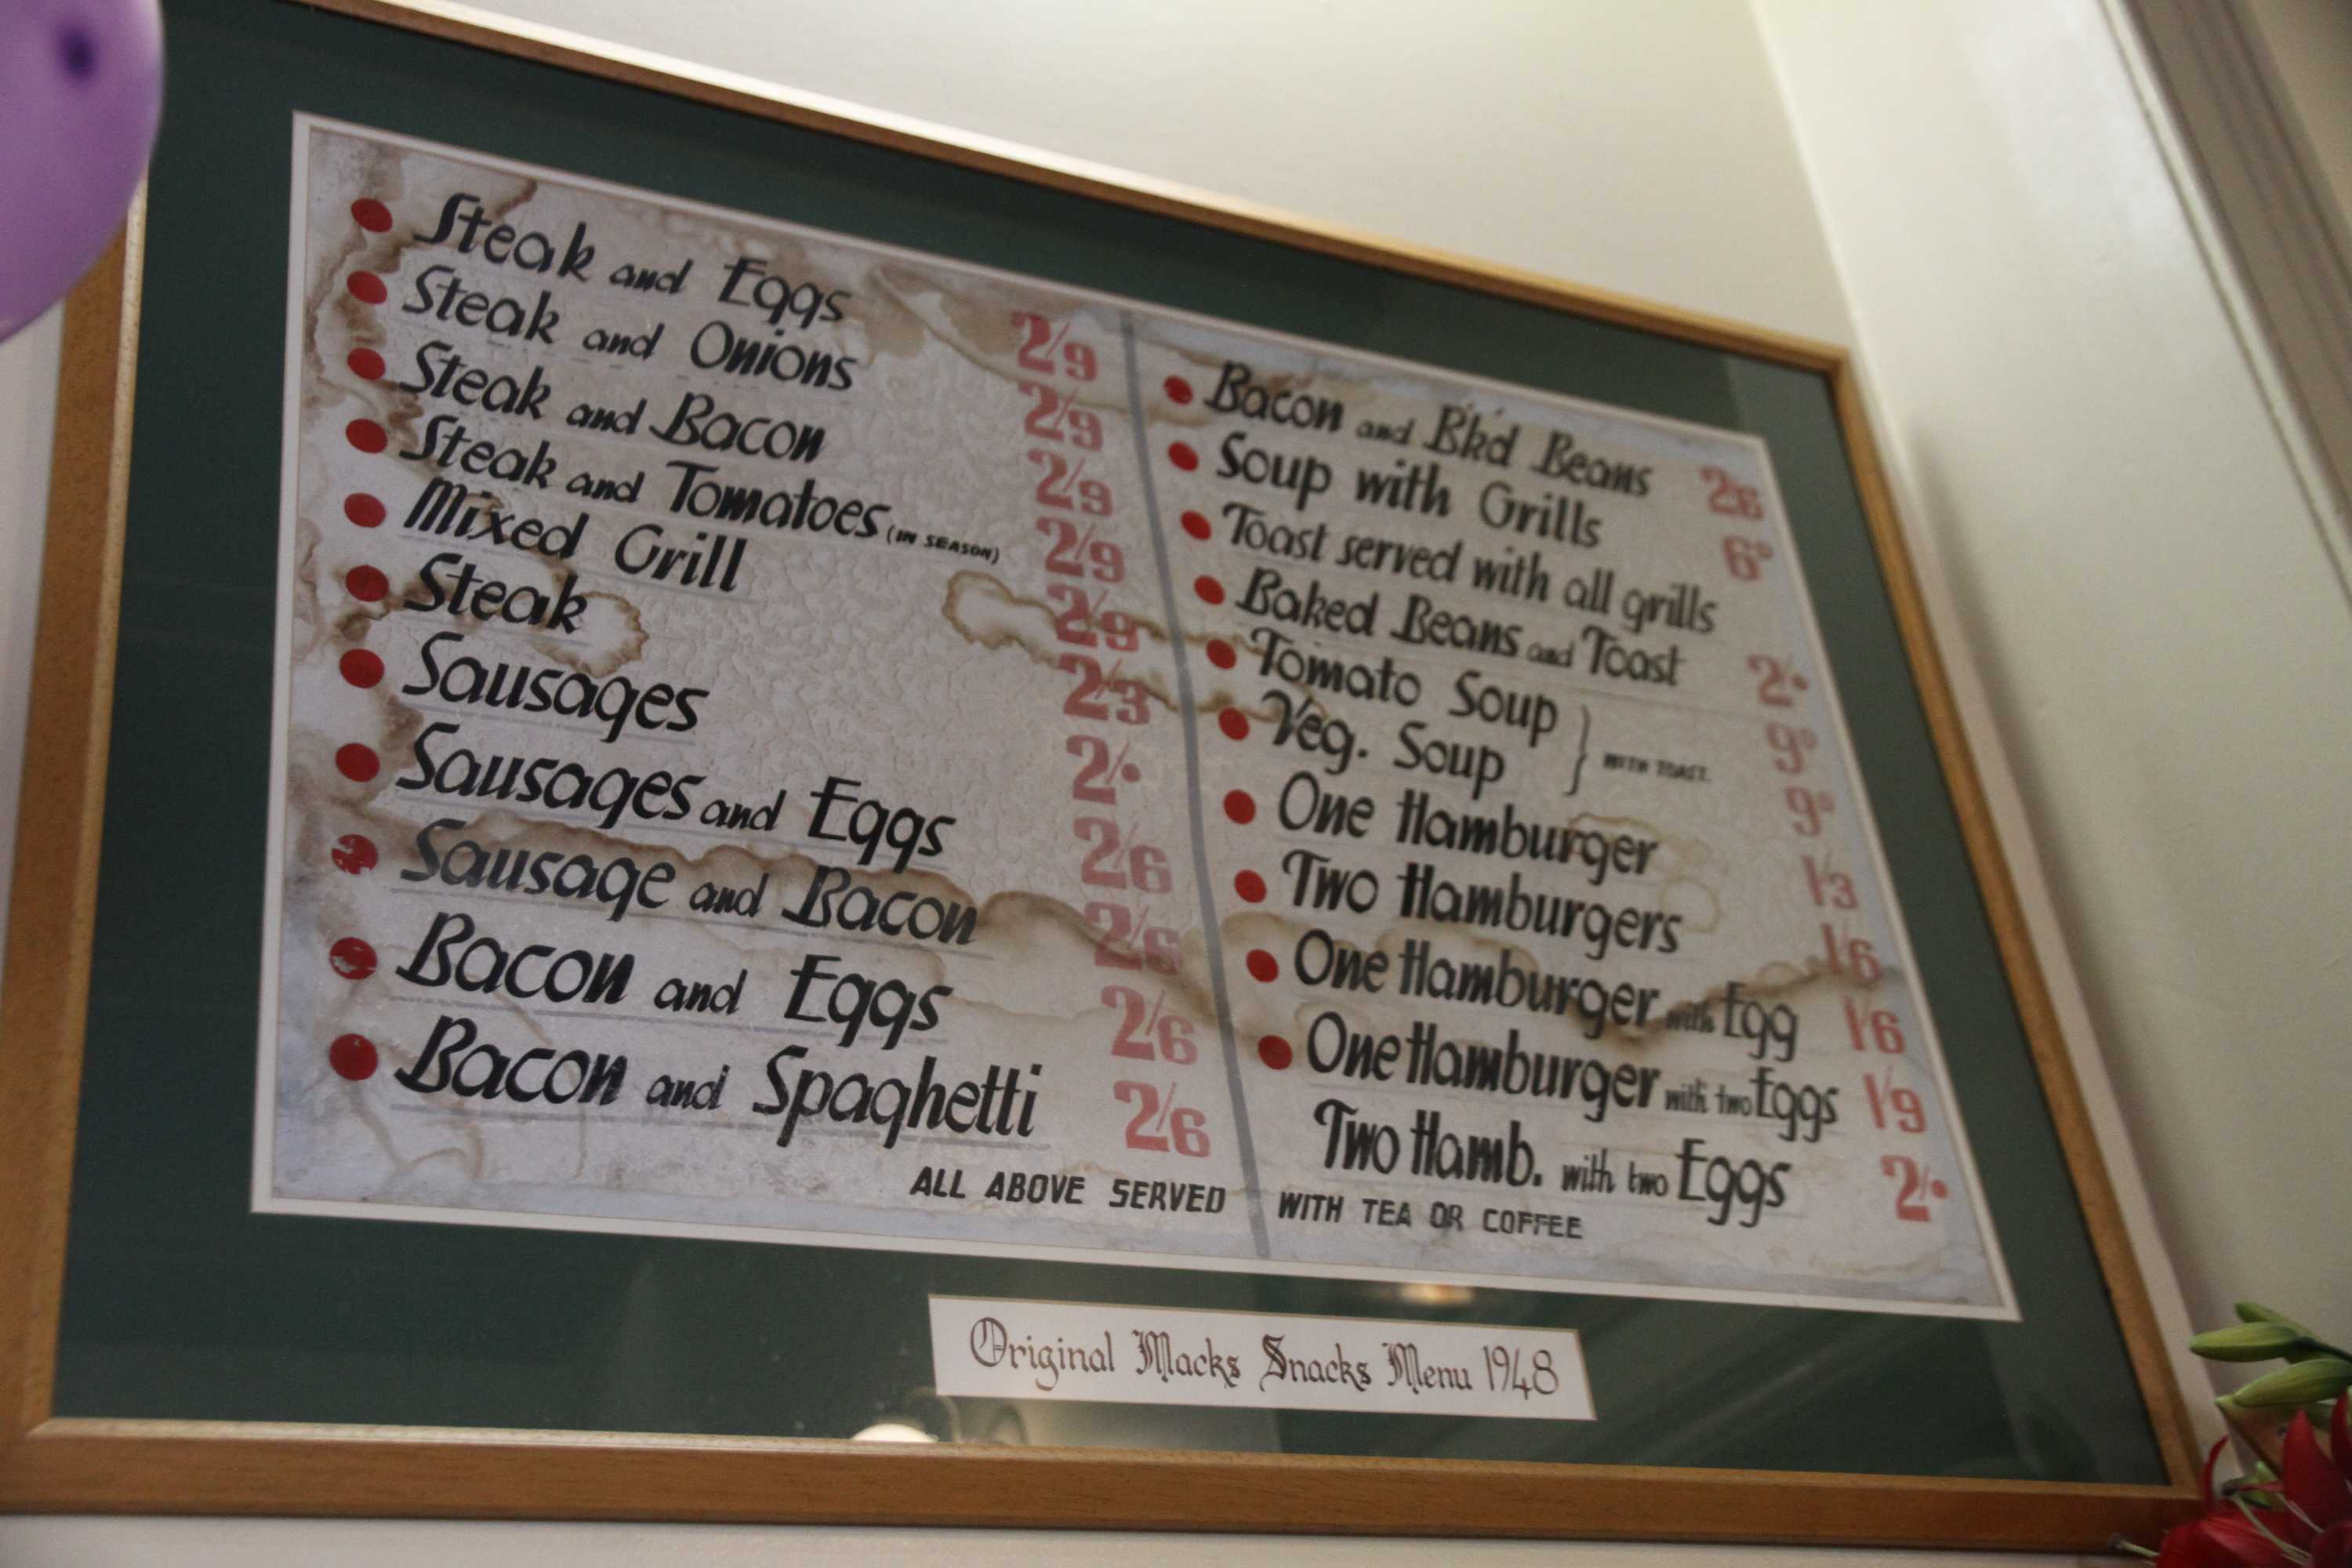 • Steak and Eggs 2/9
• Steak and Onions 2/9
• Steak and Bacon 2/9
• Steak and Tomatoes (IN SEASON) 2/9
• Mixed Grill 2/9
• Steak 2/3
• Sausages 2/•
• Sausages and Eggs 2/6
• Sausage and Bacon 2/6
• Bacon and Eggs 2/6
• Bacon and Spaghetti 2/6
• Bacon and Bkd Beans 2/6
• Soup with Grills 6ᴰ
• Toast served with all grills
• Baked Beans and Toast 2/•
• Tomato Soup 9ᴰ
• Veg. Soup } WITH TOAST. 9ᴰ
• One Hamburger 1/3
• Two Hamburgers 1/6
• One Hamburger with Egg 1/6
• One Hamburger with two Eggs 1/9
Two Hamb. with two Eggs 2/•
ALL ABOVE SERVED WITH TEA OR COFFEE
Original Macks Snacks Menu 1948